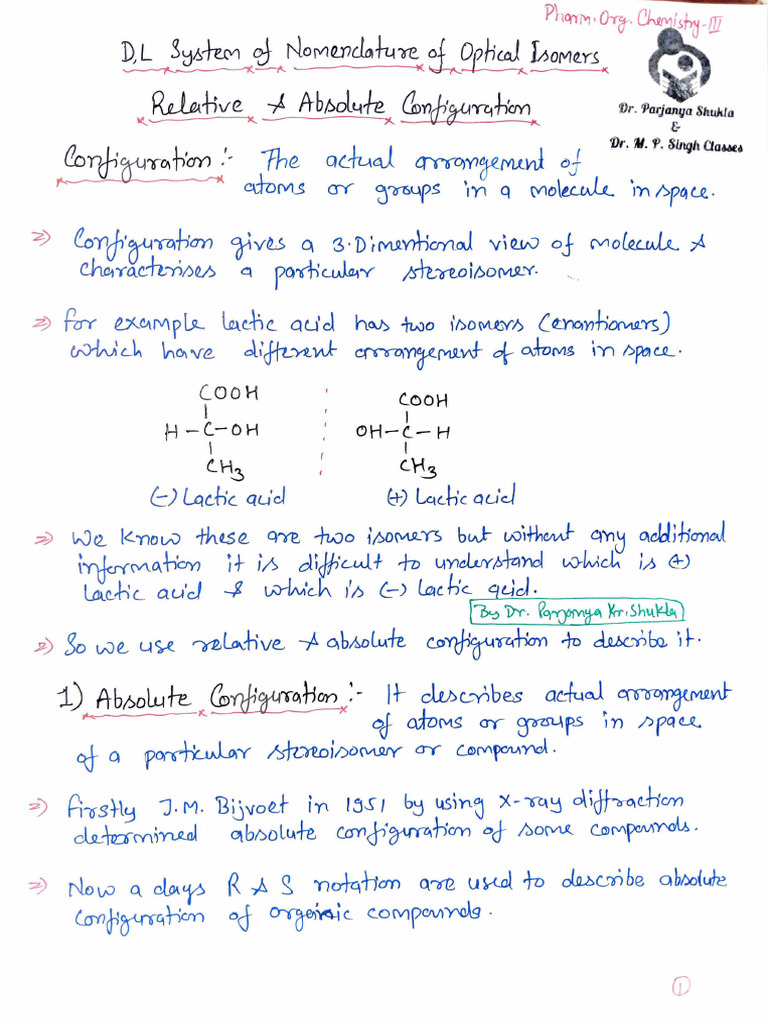 Pharm. Org. Chemistry-III
D,L System of Nomenclature of Optical Isomers
Relative & Absolute Configuration
Dr. Parjanya Shukla
&
Dr. M. P. Singh Classes
Configuration :- The actual arrangement of
atoms or groups in a molecule in space.
⇒ Configuration gives a 3-Dimentional view of molecule &
characterises a particular stereoisomer.
⇒ for example lactic acid has two isomers (enantiomers)
which have different arrangement of atoms in space.
COOH COOH
H-C-OH OH-C-H
CH3 CH3
(-) Lactic acid (+) Lactic acid
⇒ We know these are two isomers but without any additional
information it is difficult to understand which is (+)
lactic acid & which is (-) lactic acid.
By Dr. Parjanya Kr. Shukla
⇒ So we use relative & absolute configuration to describe it.
1) Absolute Configuration :- It describes actual arrangement
of atoms or groups in space
of a particular stereoisomer or compound.
⇒ firstly J.M. Bijvoet in 1951 by using X-ray diffraction
determined absolute configuration of some compounds.
⇒ Now a days R & S notation are used to describe absolute
configuration of organic compounds.
1